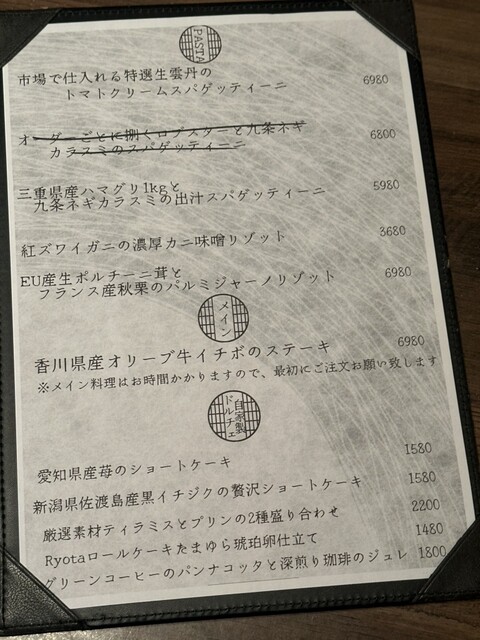 PASTA
市場で仕入れる特選生雲丹の
トマトクリームスパゲッティーニ 6980
オーダーごとに捌くロブスターと九条ネギ
カラスミのスパゲッティーニ 6800
三重県産ハマグリ1kgと
九条ネギカラスミの出汁スパゲッティーニ 5980
紅ズワイガニの濃厚カニ味噌リゾット 3680
EU産生ポルチーニ茸と
フランス産秋栗のパルミジャーノリゾット 6980
メイン
香川県産オリーブ牛イチボのステーキ 6980
※メイン料理はお時間かかりますので、最初にご注文お願い致します
自家製
ドルチェ
愛知県産苺のショートケーキ 1580
新潟県佐渡島産黒イチジクの贅沢ショートケーキ 1580
厳選素材ティラミスとプリンの2種盛り合わせ 2200
Ryotaロールケーキたまゆら琥珀卵仕立て 1480
グリーンコーヒーのパンナコッタと深煎り珈琲のジュレ 1800